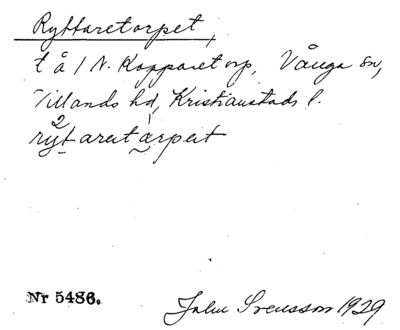 Ryttaretorpet,
t å /N. Kopparetorp, Vånga sn,
Villands hd, Kristianstads l.
rytaretarpert
Nr 5486.
John Svensson 1929